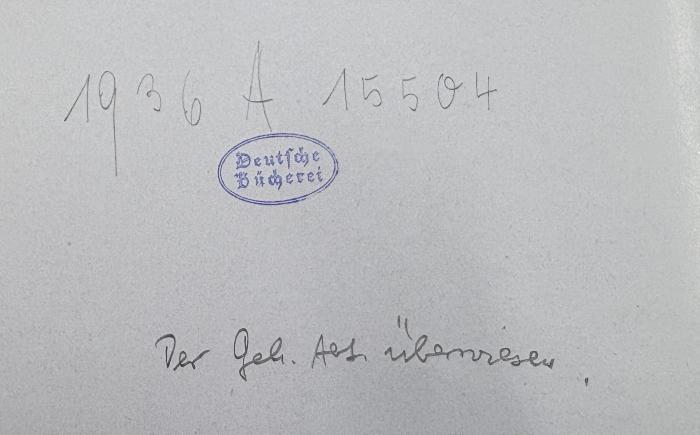 1936 A 15504
Deutsche
Bücherei
Der Geh. Abt. überwiesen.